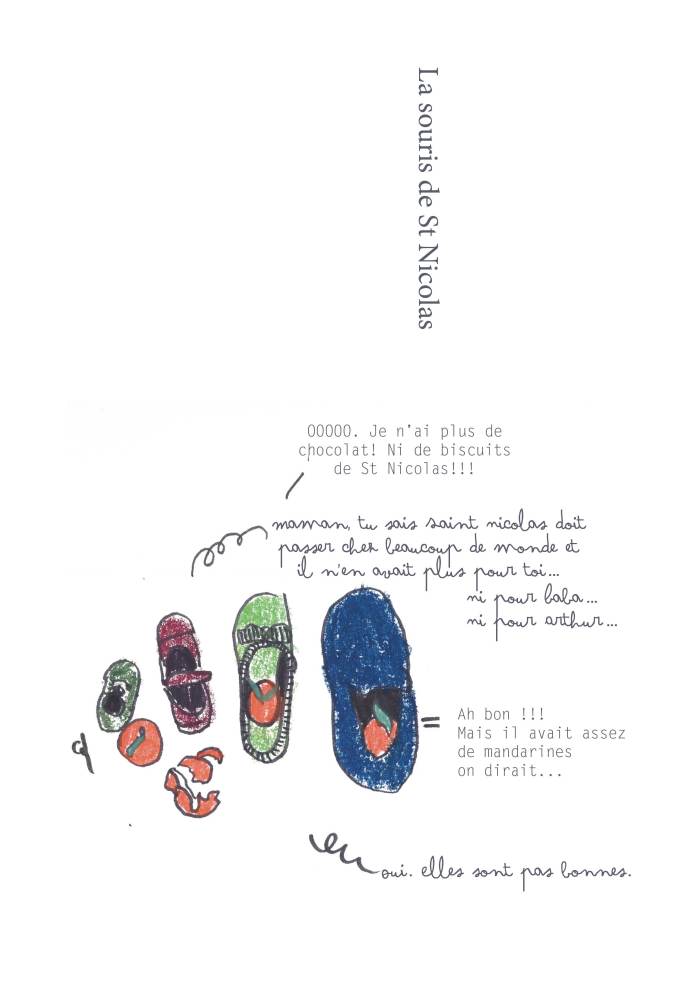 La souris de St Nicolas
OOOOO. Je n'ai plus de
chocolat! Ni de biscuits
de St Nicolas!!!
maman, tu sais saint nicolas doit
passer chez beaucoup de monde et
il n'en avait plus pour toi...
ni pour baba...
ni pour arthur...
Ah bon !!!
Mais il avait assez
de mandarines
on dirait...
oui. elles sont pas bonnes.